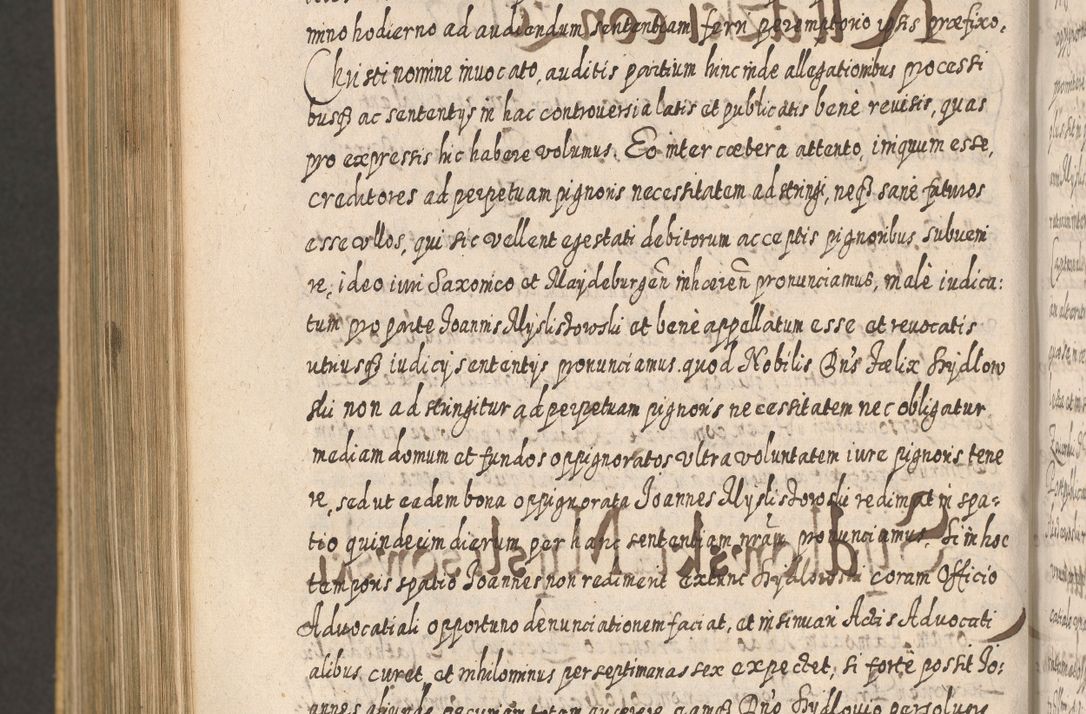 mino hodierno ad audiendum sententiam ferri peremptorio ipsis præfixo.
Christi nomine invocato, auditis partium hinc inde allegationibus processi
busq3 ac sententijs in hac controversia latis et publicatis benè revisis, quas
pro expressis hic habere volumus. Eo inter cœtera attento, iniquum esse,
creditores ad perpetuam pignoris necessitatem adstringi, neq3 sanè futuros
esse vllos, qui sic vellent egestati debitorum acceptis pignoribus subveni
re, ideo iuri Saxonico et Maydeburgeñ inhœreñ pronunciamus, malè iudica:
tum pro parte Joannis Myslistowski et benè appellatum esse et revocatis
utriusq3 iudicij sententijs pronunciamus quod Nobilis Dns Fœlix Szydlow
ski non adstringitur ad perpetuam pignoris necessitatem nec obligatur
mediam domum et fundos oppignoratos vltra voluntatem iure pignoris tene
re, sed ut eadem bona oppignorata Joannes Myslistowski redimat in spa=
tio quindecim dierum per hanc sententiam nrãm pronunciamus. Si in hoc
temporis spatio Joannes non rediment extunc Szydlowski coram Officio
Advocatiali opportuno denunciationem faciat, et insinuari Actis Advocati
alibus curet, et nihilominus per septimanas sex expectet, si fortè possit Jo:
annes aliunde pecuniam totam auferre eamq3 Dno Szydlovio persolvere